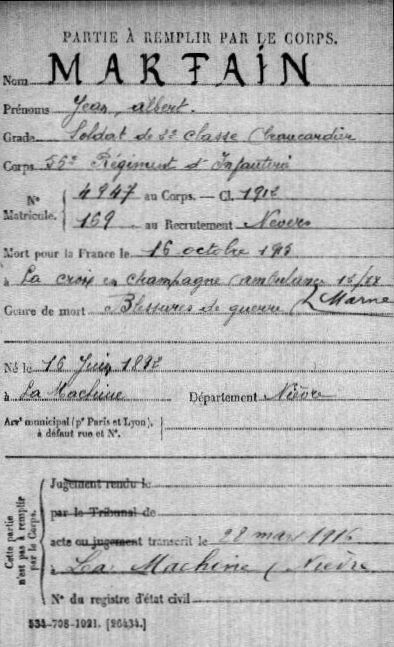 PARTIE À REMPLIR PAR LE CORPS.
Nom MARTAIN
Prénoms Jean, albert.
Grade Soldat de 2e classe (brancardier
Corps 56e Régiment d'Infanterie
N° Matricule. 4947 au Corps. — Cl. 1912
169 au Recrutement Nevers
Mort pour la France le 16 octobre 1915
à La croix en champagne (ambulance 15/
Genre de mort Blessures de guerre (Marne
Né le 16 Juin 1892
à La Machine Département Nièvre
Arrt municipal (pr Paris et Lyon),
à défaut rue et N°.
Cette partie
n'est pas à remplir
par le Corps.
Jugement rendu le
par le Tribunal de
acte ou jugement transcrit le 28 mars 1916
à La Machine (Nièvre
N° du registre d'état civil
534-708-1921. [26434.]